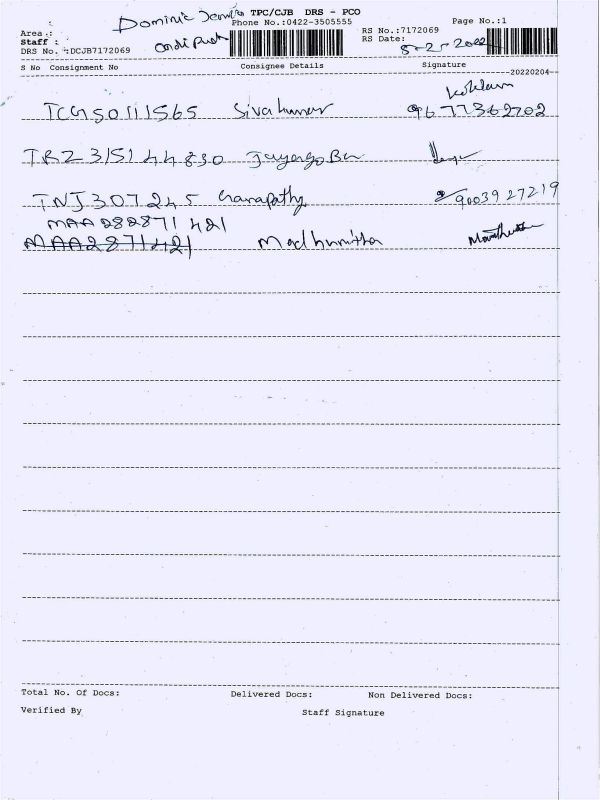 Dominic TPC/CJB DRS - PCO
Area.: Phone No.:0422-3505555 Page No.:1
Staff : RS No.:7172069
DRS No. :DCJB7172069 RS Date: 5-2-2022
S No Consignment No Consignee Details Signature
20220204
TCG50111565 Sivakumar 9677362702
TRZ315144830
TNJ307245 Ganapathy 9003927219
MAA282871421
MAA2871421 Madhumitha
Total No. Of Docs: Delivered Docs: Non Delivered Docs:
Verified By Staff Signature